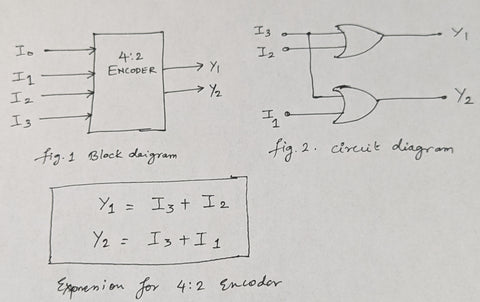 I0
I1
I2
I3
4:2
ENCODER
Y1
Y2
fig.1 Block deigram
I3
I2
I1
Y1
Y2
fig.2. circuit diagram
Y1 = I3 + I2
Y2 = I3 + I1
Expression for 4:2 Encoder